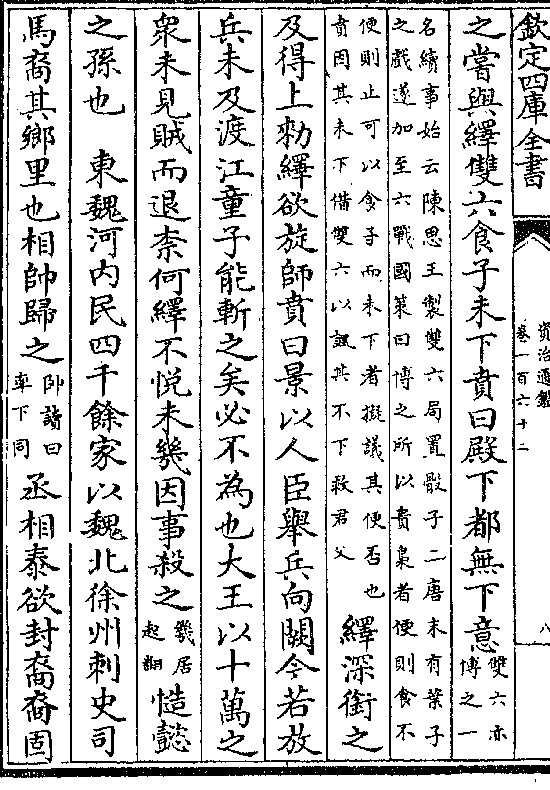 欽定四庫全書
資治通鑑
卷一百六十二
八
之嘗與繹雙六食子未下賁曰殿下都無下意雙六亦
博之一
名續事始云陳思王製雙六局置骰子二唐末有葉子
之戲遂加至六戰國策曰博之所以貴梟者便則食不
便則止可以食子而未下者擬議其便否也
賁因其未下借雙六以諷其不下救君父
繹深銜之
及得上勑繹欲旋師賁曰景以人臣舉兵向闕今若放
兵未及渡江童子能斬之矣必不為也大王以十萬之
衆未見賊而退柰何繹不悦未幾因事殺之幾居
起翻
慥懿
之孫也　東魏河内民四千餘家以魏北徐州刺史司
馬裔其鄉里也相帥歸之帥讀曰
率下同
丞相泰欲封裔裔固